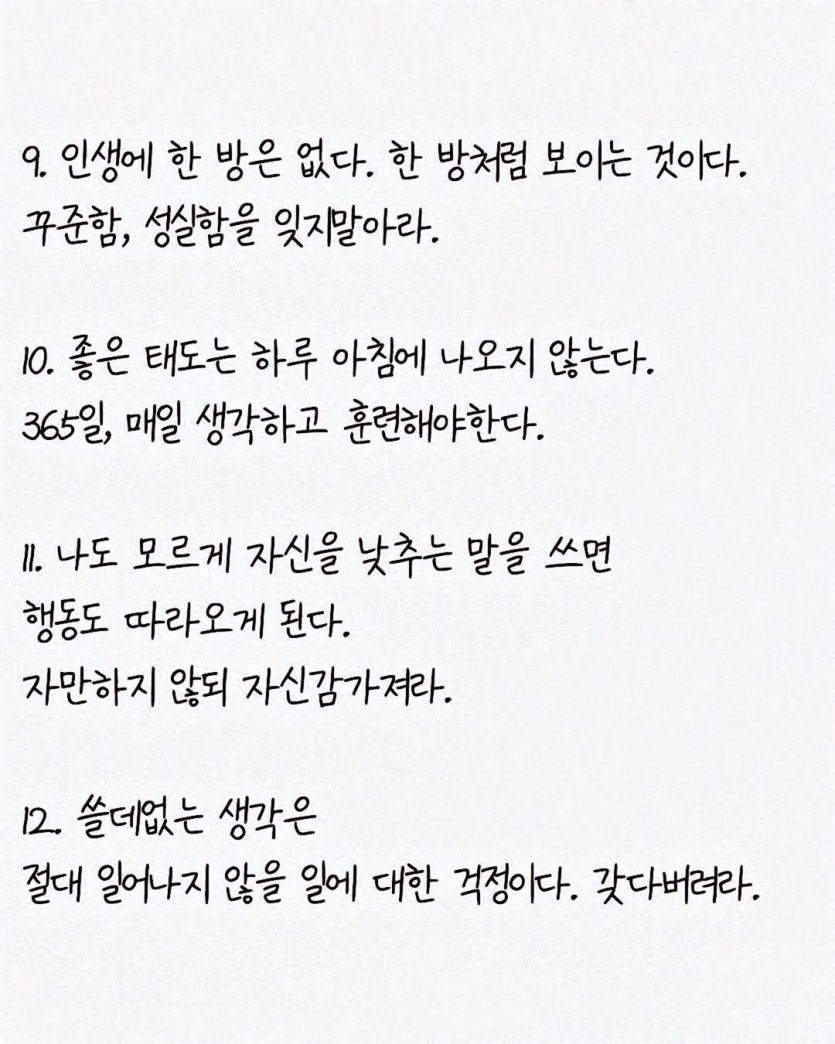 9. 인생에 한 방은 없다. 한 방처럼 보이는 것이다.
꾸준함, 성실함을 잊지말아라.
10. 좋은 태도는 하루 아침에 나오지 않는다.
365일, 매일 생각하고 훈련해야한다.
11. 나도 모르게 자신을 낮추는 말을 쓰면
행동도 따라오게 된다.
자만하지 않되 자신감가져라.
12. 쓸데없는 생각은
절대 일어나지 않을 일에 대한 걱정이다. 갖다버려라.